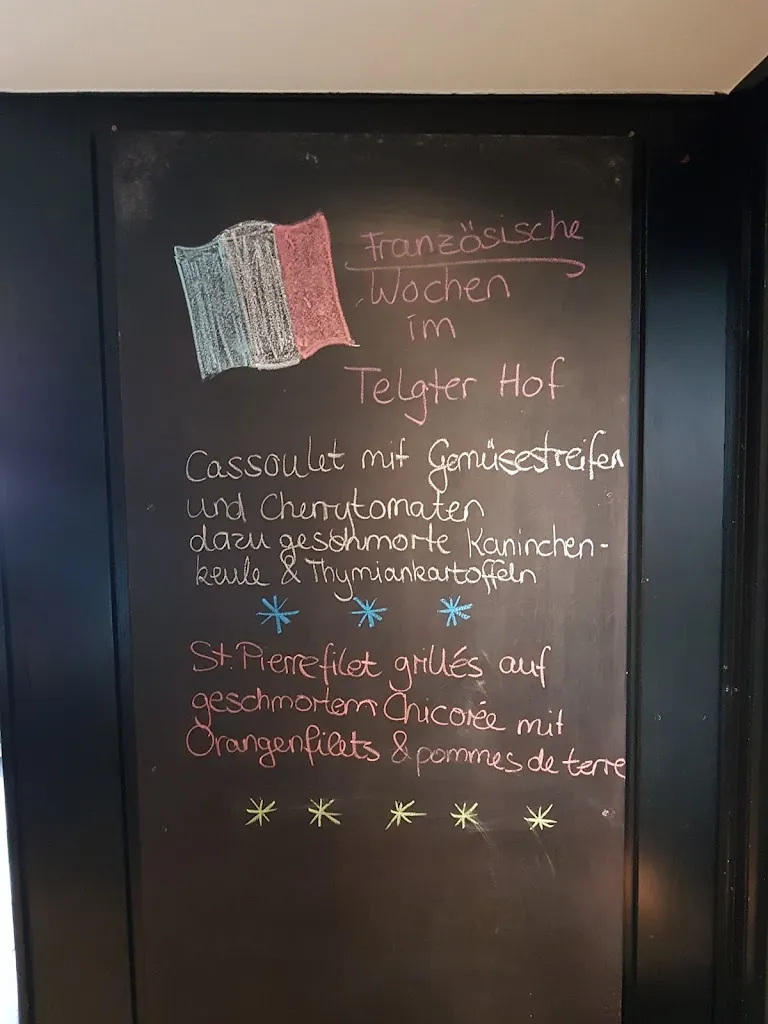 Französische
Wochen
im
Telgter Hof
Cassoulet mit Gemüsestreifen
und Cherrytomaten
dazu geschmorte Kaninchen-
keule & Thymiankartoffeln
St. Pierrefilet grillés auf
geschmortem Chicorée mit
Orangenfilets & pommes de terre